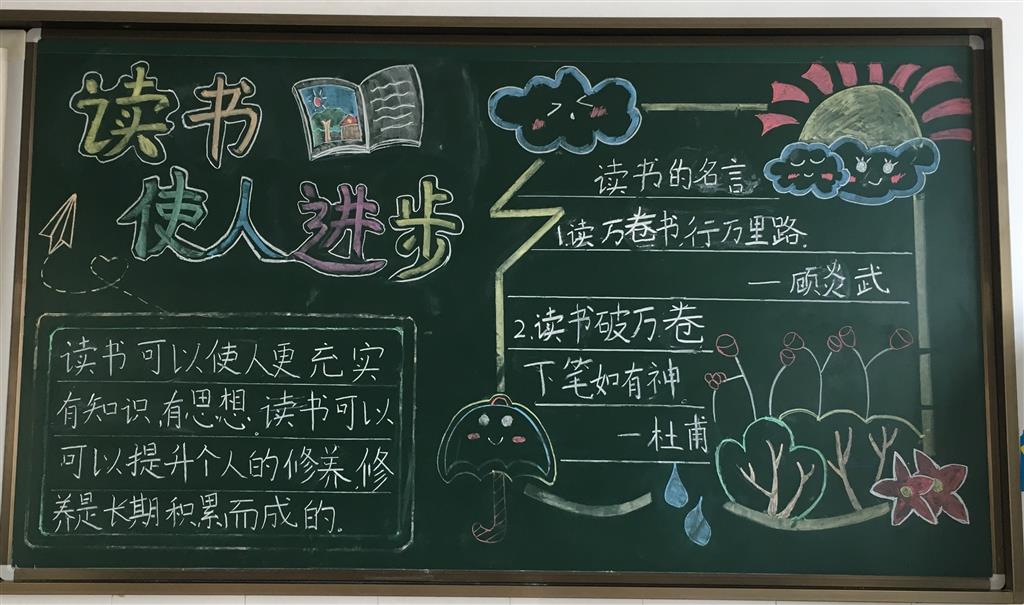 读书
使人进步
读书可以使人更充实
有知识,有思想.读书可以
可以提升个人的修养,修
养是长期积累而成的.
读书的名言
1.读万卷书,行万里路.
—顾炎武
2.读书破万卷
下笔如有神.
—杜甫